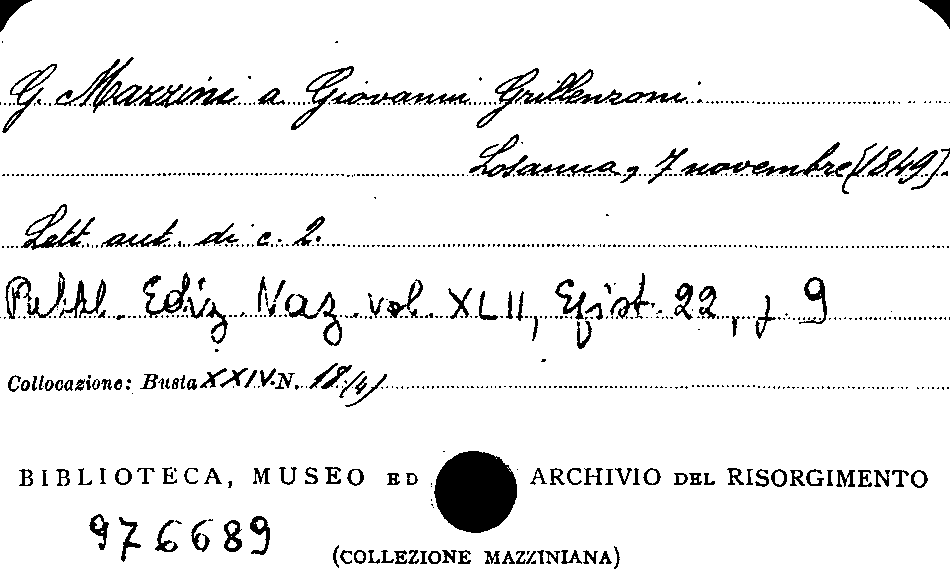 G. Mazzini a Giovanni Grillenzoni.
Losanna, 7 novembre [1849].
Lett. aut. di c. 2.
Pubbl. Ediz. Naz. vol. XLII, Epist. 22, p. 9
Collocazione: Busta XXIV N. 18/4)
BIBLIOTECA, MUSEO ED ARCHIVIO DEL RISORGIMENTO
976689
(COLLEZIONE MAZZINIANA)